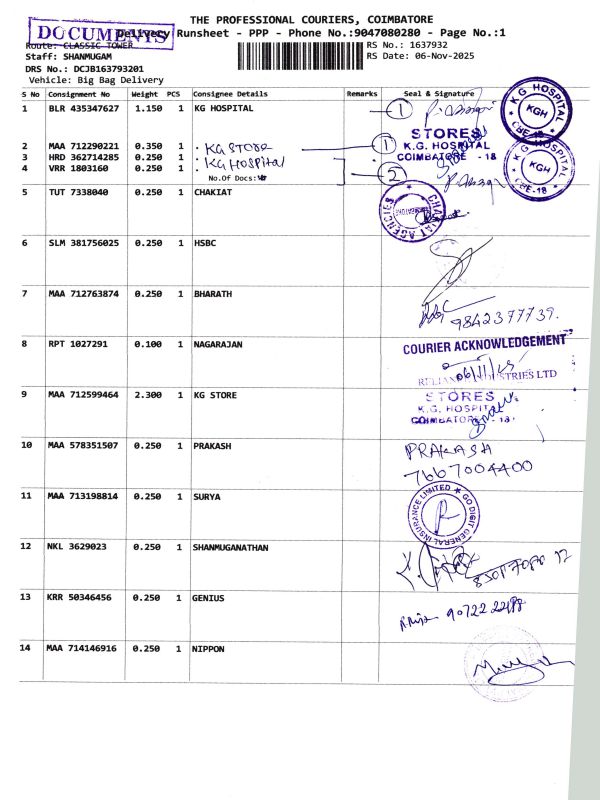 THE PROFESSIONAL COURIERS, COIMBATORE
DOCUMENTS
Delivery Runsheet - PPP - Phone No.:9047080280 - Page No.:1
Route: CLASSIC TOWER
RS No.: 1637932
Staff: SHANMUGAM
RS Date: 06-Nov-2025
DRS No.: DCJB163793201
Vehicle: Big Bag Delivery
S No Consignment No Weight PCS Consignee Details Remarks Seal & Signature
1 BLR 435347627 1.150 1 KG HOSPITAL 1
K G HOSPITAL KGH CBE-18
STORES
K.G. HOSPITAL
COIMBATORE - 18
2 MAA 712290221 0.350 1 KG STORE 1
3 HRD 362714285 0.250 1 KG Hospital
4 VRR 1803160 0.250 1 2
No.Of Docs:
K G HOSPITAL KGH CBE-18
5 TUT 7338040 0.250 1 CHAKIAT
CHAKIAT AGENCIES
6 SLM 381756025 0.250 1 HSBC
7 MAA 712763874 0.250 1 BHARATH
9842377739.
8 RPT 1027291 0.100 1 NAGARAJAN
COURIER ACKNOWLEDGEMENT
06/11/25
RELIANCE INDUSTRIES LTD
9 MAA 712599464 2.300 1 KG STORE
STORES
K.G. HOSPITAL
COIMBATORE - 18
10 MAA 578351507 0.250 1 PRAKASH
PRAKASH
7667004400
11 MAA 713198814 0.250 1 SURYA
GO DIGIT GENERAL INSURANCE LIMITED
12 NKL 3629023 0.250 1 SHANMUGANATHAN
13 KRR 50346456 0.250 1 GENIUS
14 MAA 714146916 0.250 1 NIPPON